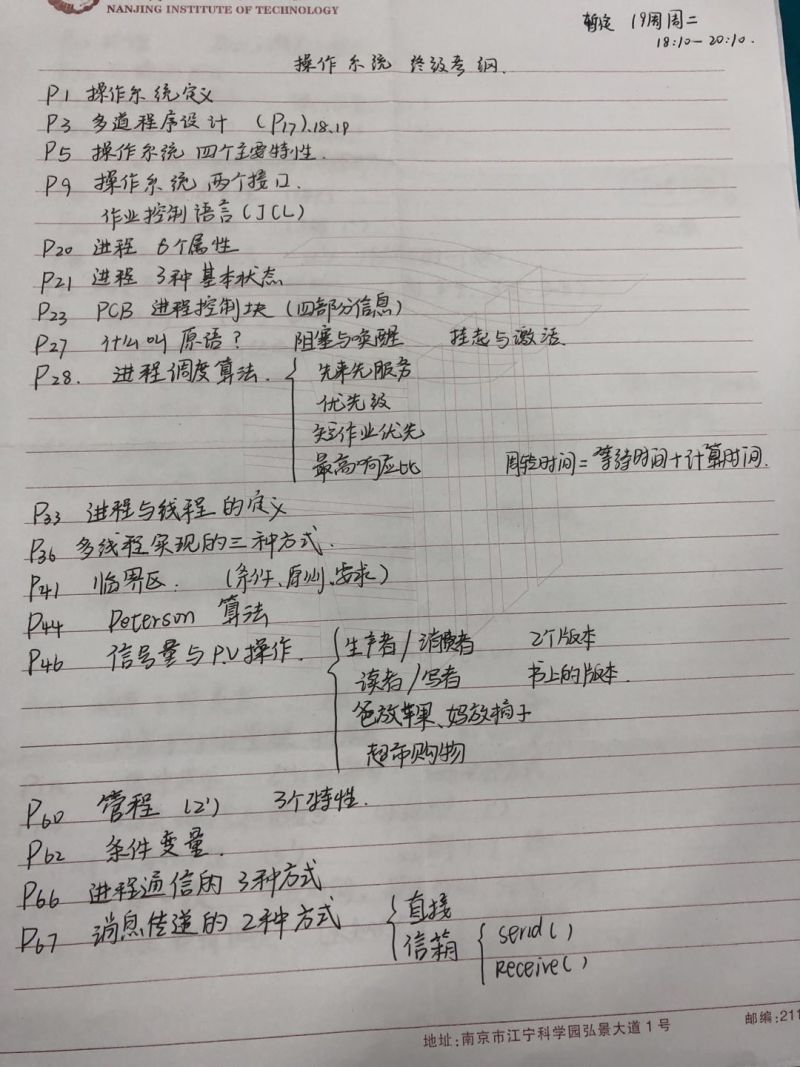 NANJING INSTITUTE OF TECHNOLOGY
暂定 19周周二
18:10-20:10.
操作系统 终级考纲.
P1 操作系统定义
P3 多道程序设计 (P17).18.19
P5 操作系统 四个主要特性.
P9 操作系统 两个接口.
作业控制语言(JCL)
P20 进程 6个属性
P21 进程 3种基本状态
P23 PCB 进程控制块 (四部分信息)
P27 什么叫原语? 阻塞与唤醒 挂起与激活.
P28. 进程调度算法. 先来先服务
优先级
短作业优先
最高响应比 周转时间=等待时间+计算时间.
P33 进程与线程的定义
P36 多线程实现的三种方式.
P41 临界区. (条件、原则、要求)
P44 Peterson 算法
P46 信号量与P.V操作. 生产者/消费者 2个版本
读者/写者 书上的版本.
爸放苹果、妈放橘子
超市购物
P60 管程 (2') 3个特性.
P62 条件变量.
P66 进程通信的3种方式
P67 消息传递的2种方式 直接
信箱 send()
receive()
地址:南京市江宁科学园弘景大道1号 邮编:211